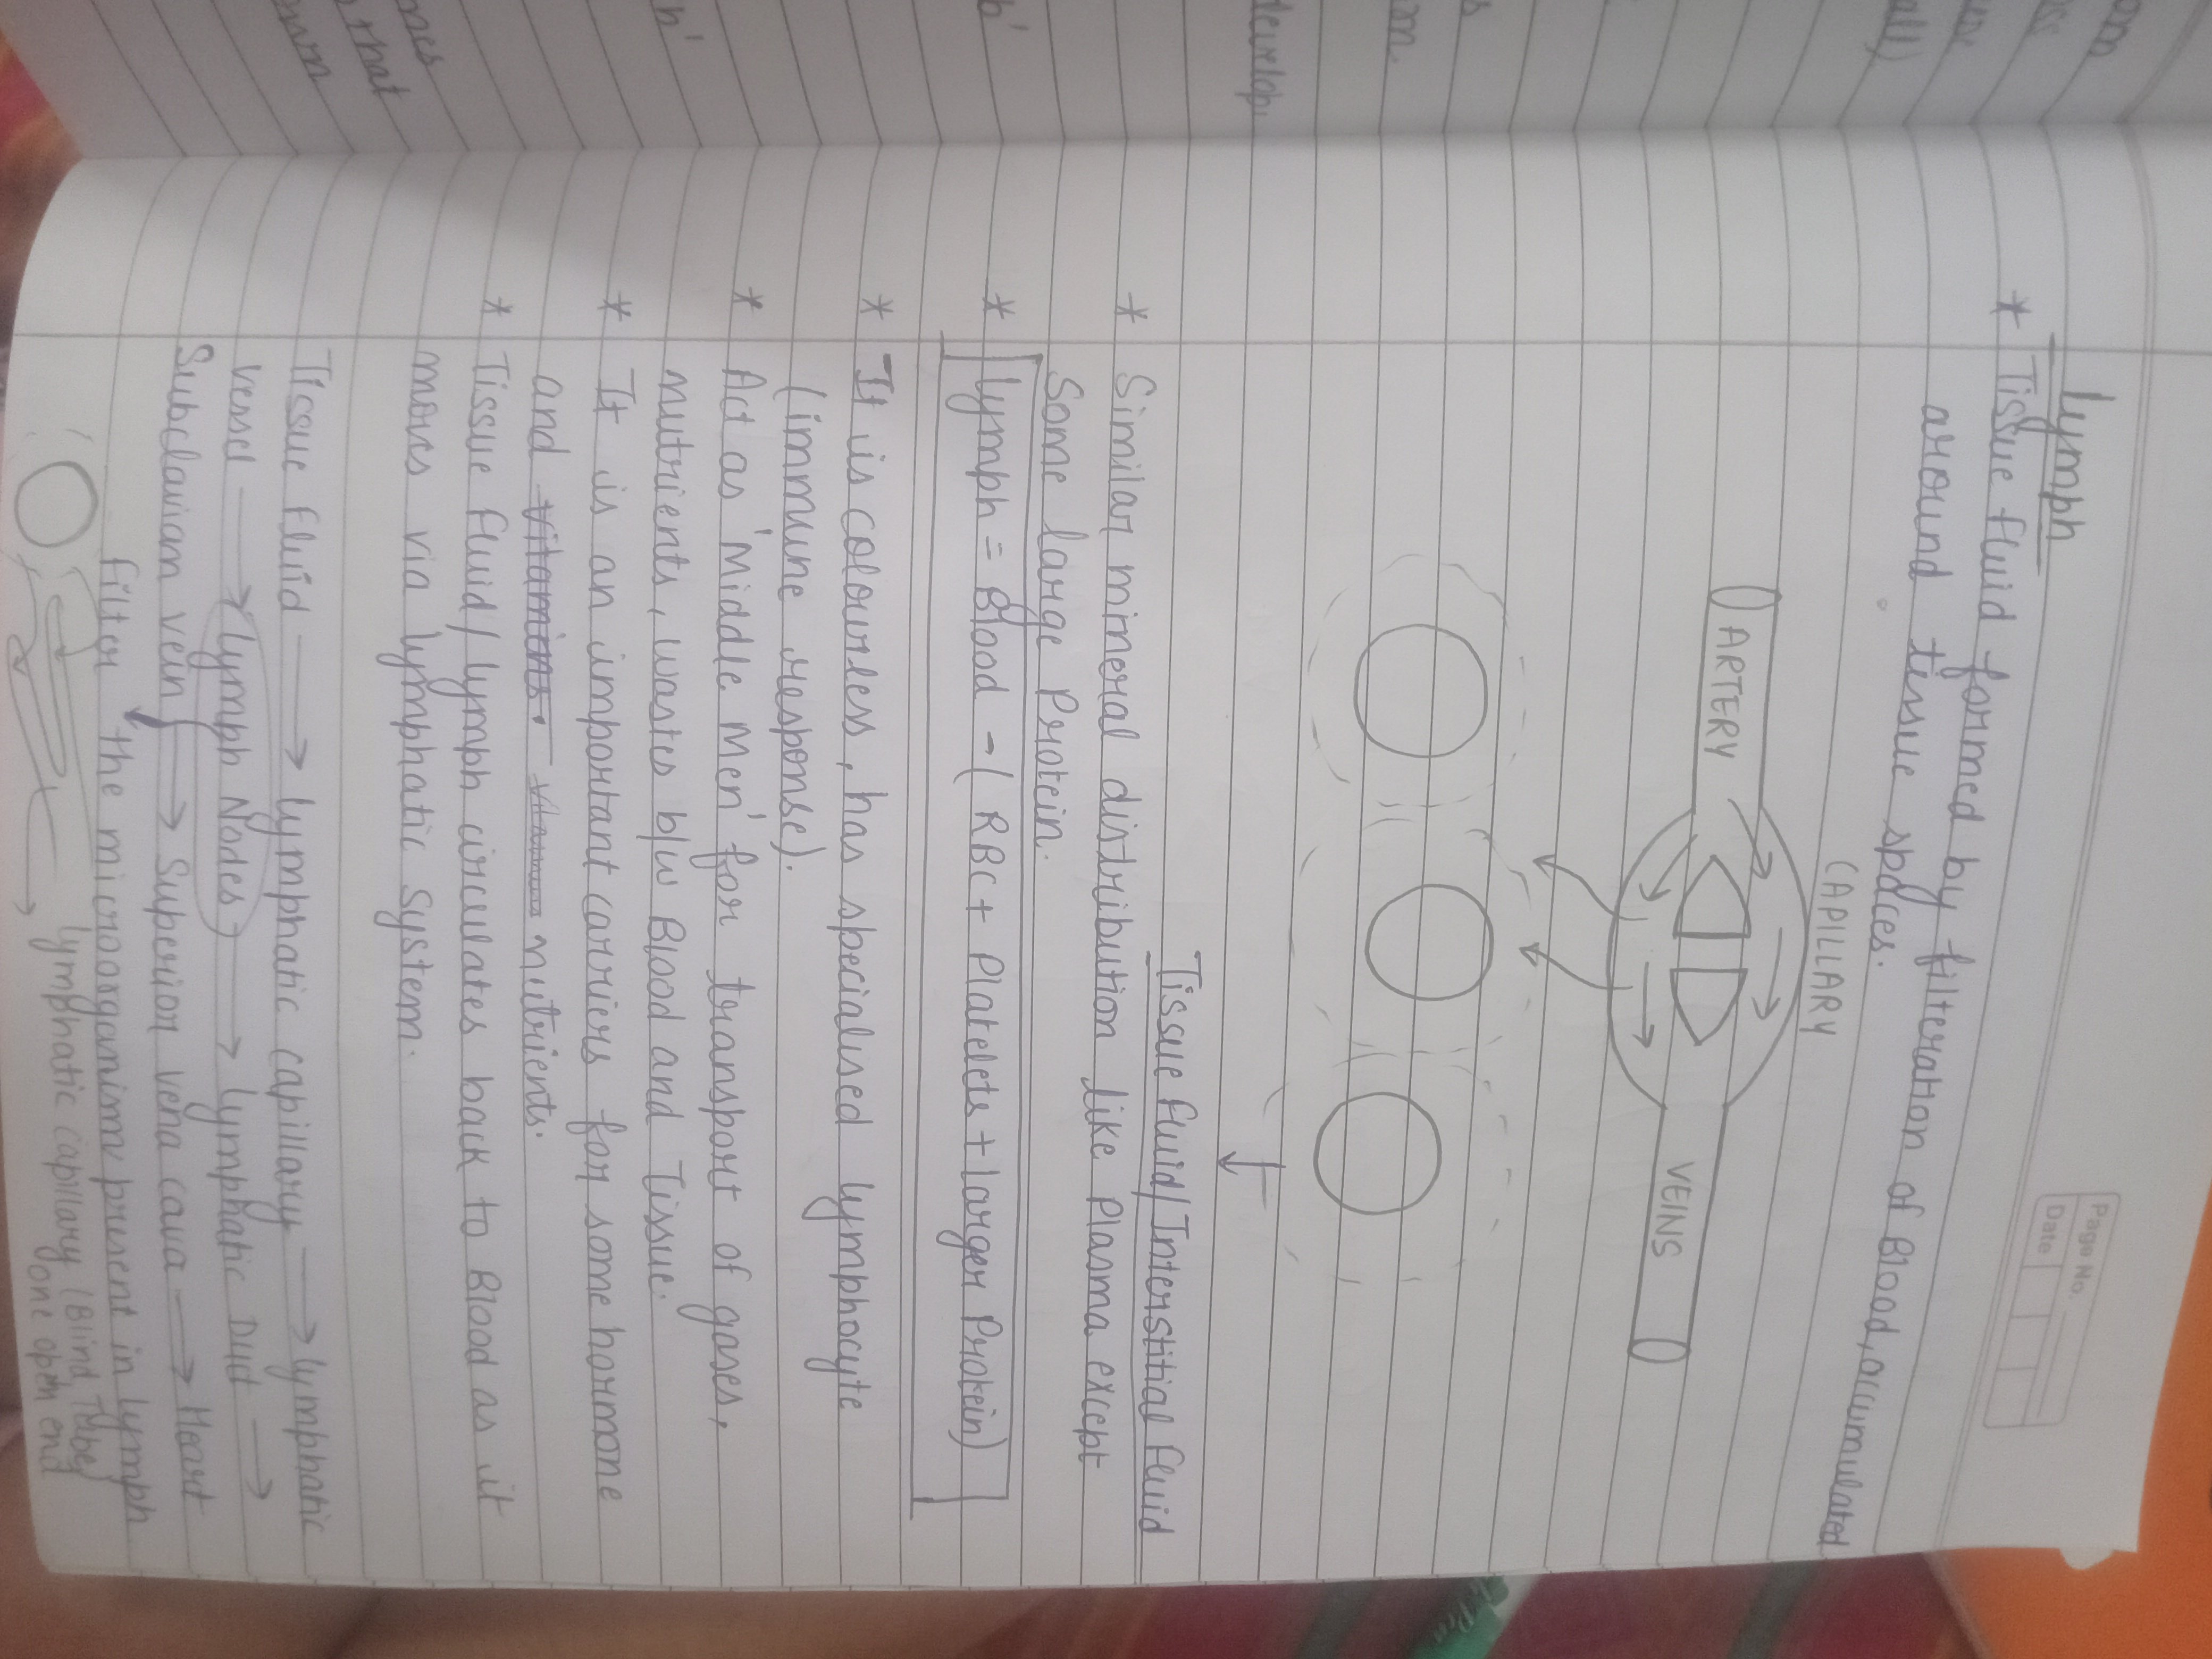 Page No.
Date
Lymph
* Tissue fluid formed by filteration of Blood, accumulated
around tissue spaces.
CAPILLARY
ARTERY
VEINS
Tissue fluid/Interstitial fluid
* Similar mineral distribution like Plasma except
Some large Protein.
* Lymph = Blood - (RBC + Platelets + larger Protein)
* It is colourless, has specialised lymphocyte
(immune response).
* Act as 'Middle Men' for transport of gases,
nutrients, wastes b/w Blood and Tissue.
* It is an important carriers for some hormone
and vitamins. vitamins nutrients.
* Tissue fluid/lymph circulates back to Blood as it
moves via lymphatic system.
Tissue fluid → lymphatic capillary → lymphatic
vessel → (lymph Nodes) → lymphatic Duct →
Subclavian vein → Superior vena cava → Heart
filter the microorganism present in lymph
lymphatic capillary (Blind Tube)
one open end